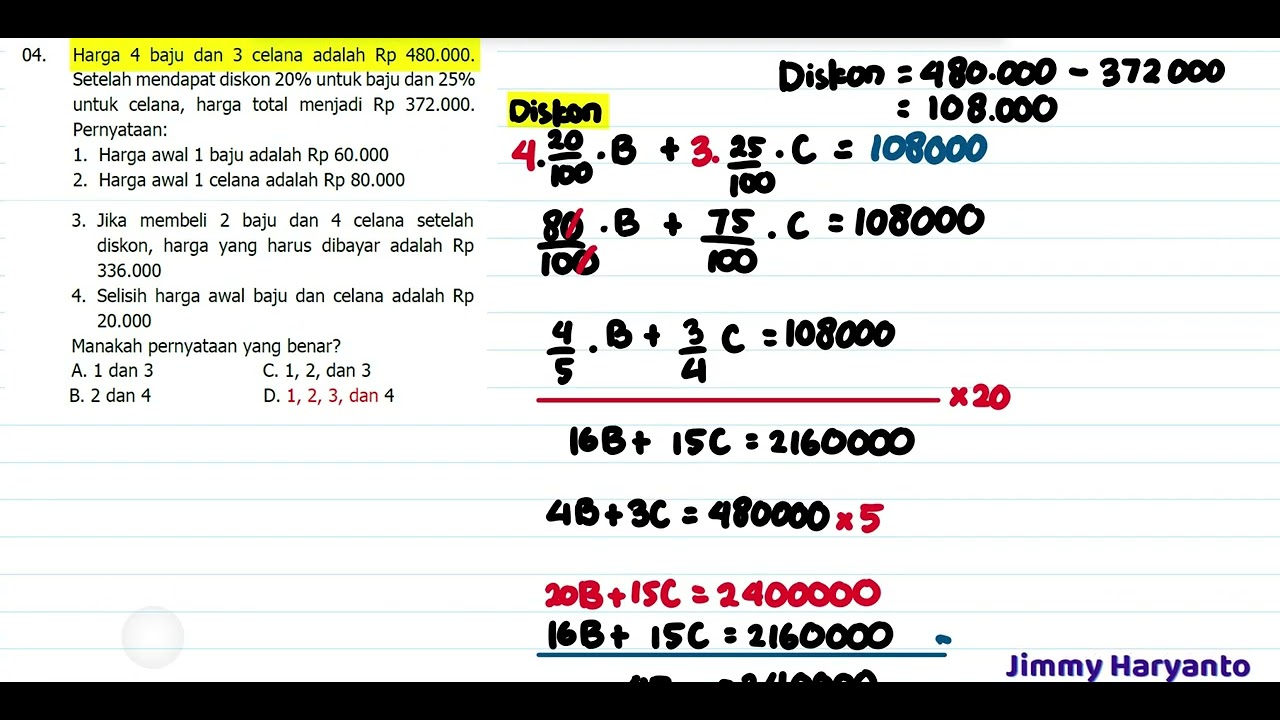 04. Harga 4 baju dan 3 celana adalah Rp 480.000.
Setelah mendapat diskon 20% untuk baju dan 25%
untuk celana, harga total menjadi Rp 372.000.
Pernyataan:
1. Harga awal 1 baju adalah Rp 60.000
2. Harga awal 1 celana adalah Rp 80.000
3. Jika membeli 2 baju dan 4 celana setelah
diskon, harga yang harus dibayar adalah Rp
336.000
4. Selisih harga awal baju dan celana adalah Rp
20.000
Manakah pernyataan yang benar?
A. 1 dan 3 C. 1, 2, dan 3
B. 2 dan 4 D. 1, 2, 3, dan 4
Diskon = 480.000 - 372000
= 108.000
Diskon
4. 20/100 . B + 3. 25/100 . C = 108000
80/100 . B + 75/100 . C = 108000
4/5 . B + 3/4 C = 108000
x 20
16B + 15C = 2160000
4B + 3C = 480000 x 5
20B + 15C = 2400000
16B + 15C = 2160000 -
Jimmy Haryanto